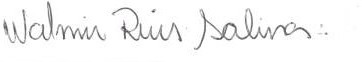 Walmir Rui Salinas: